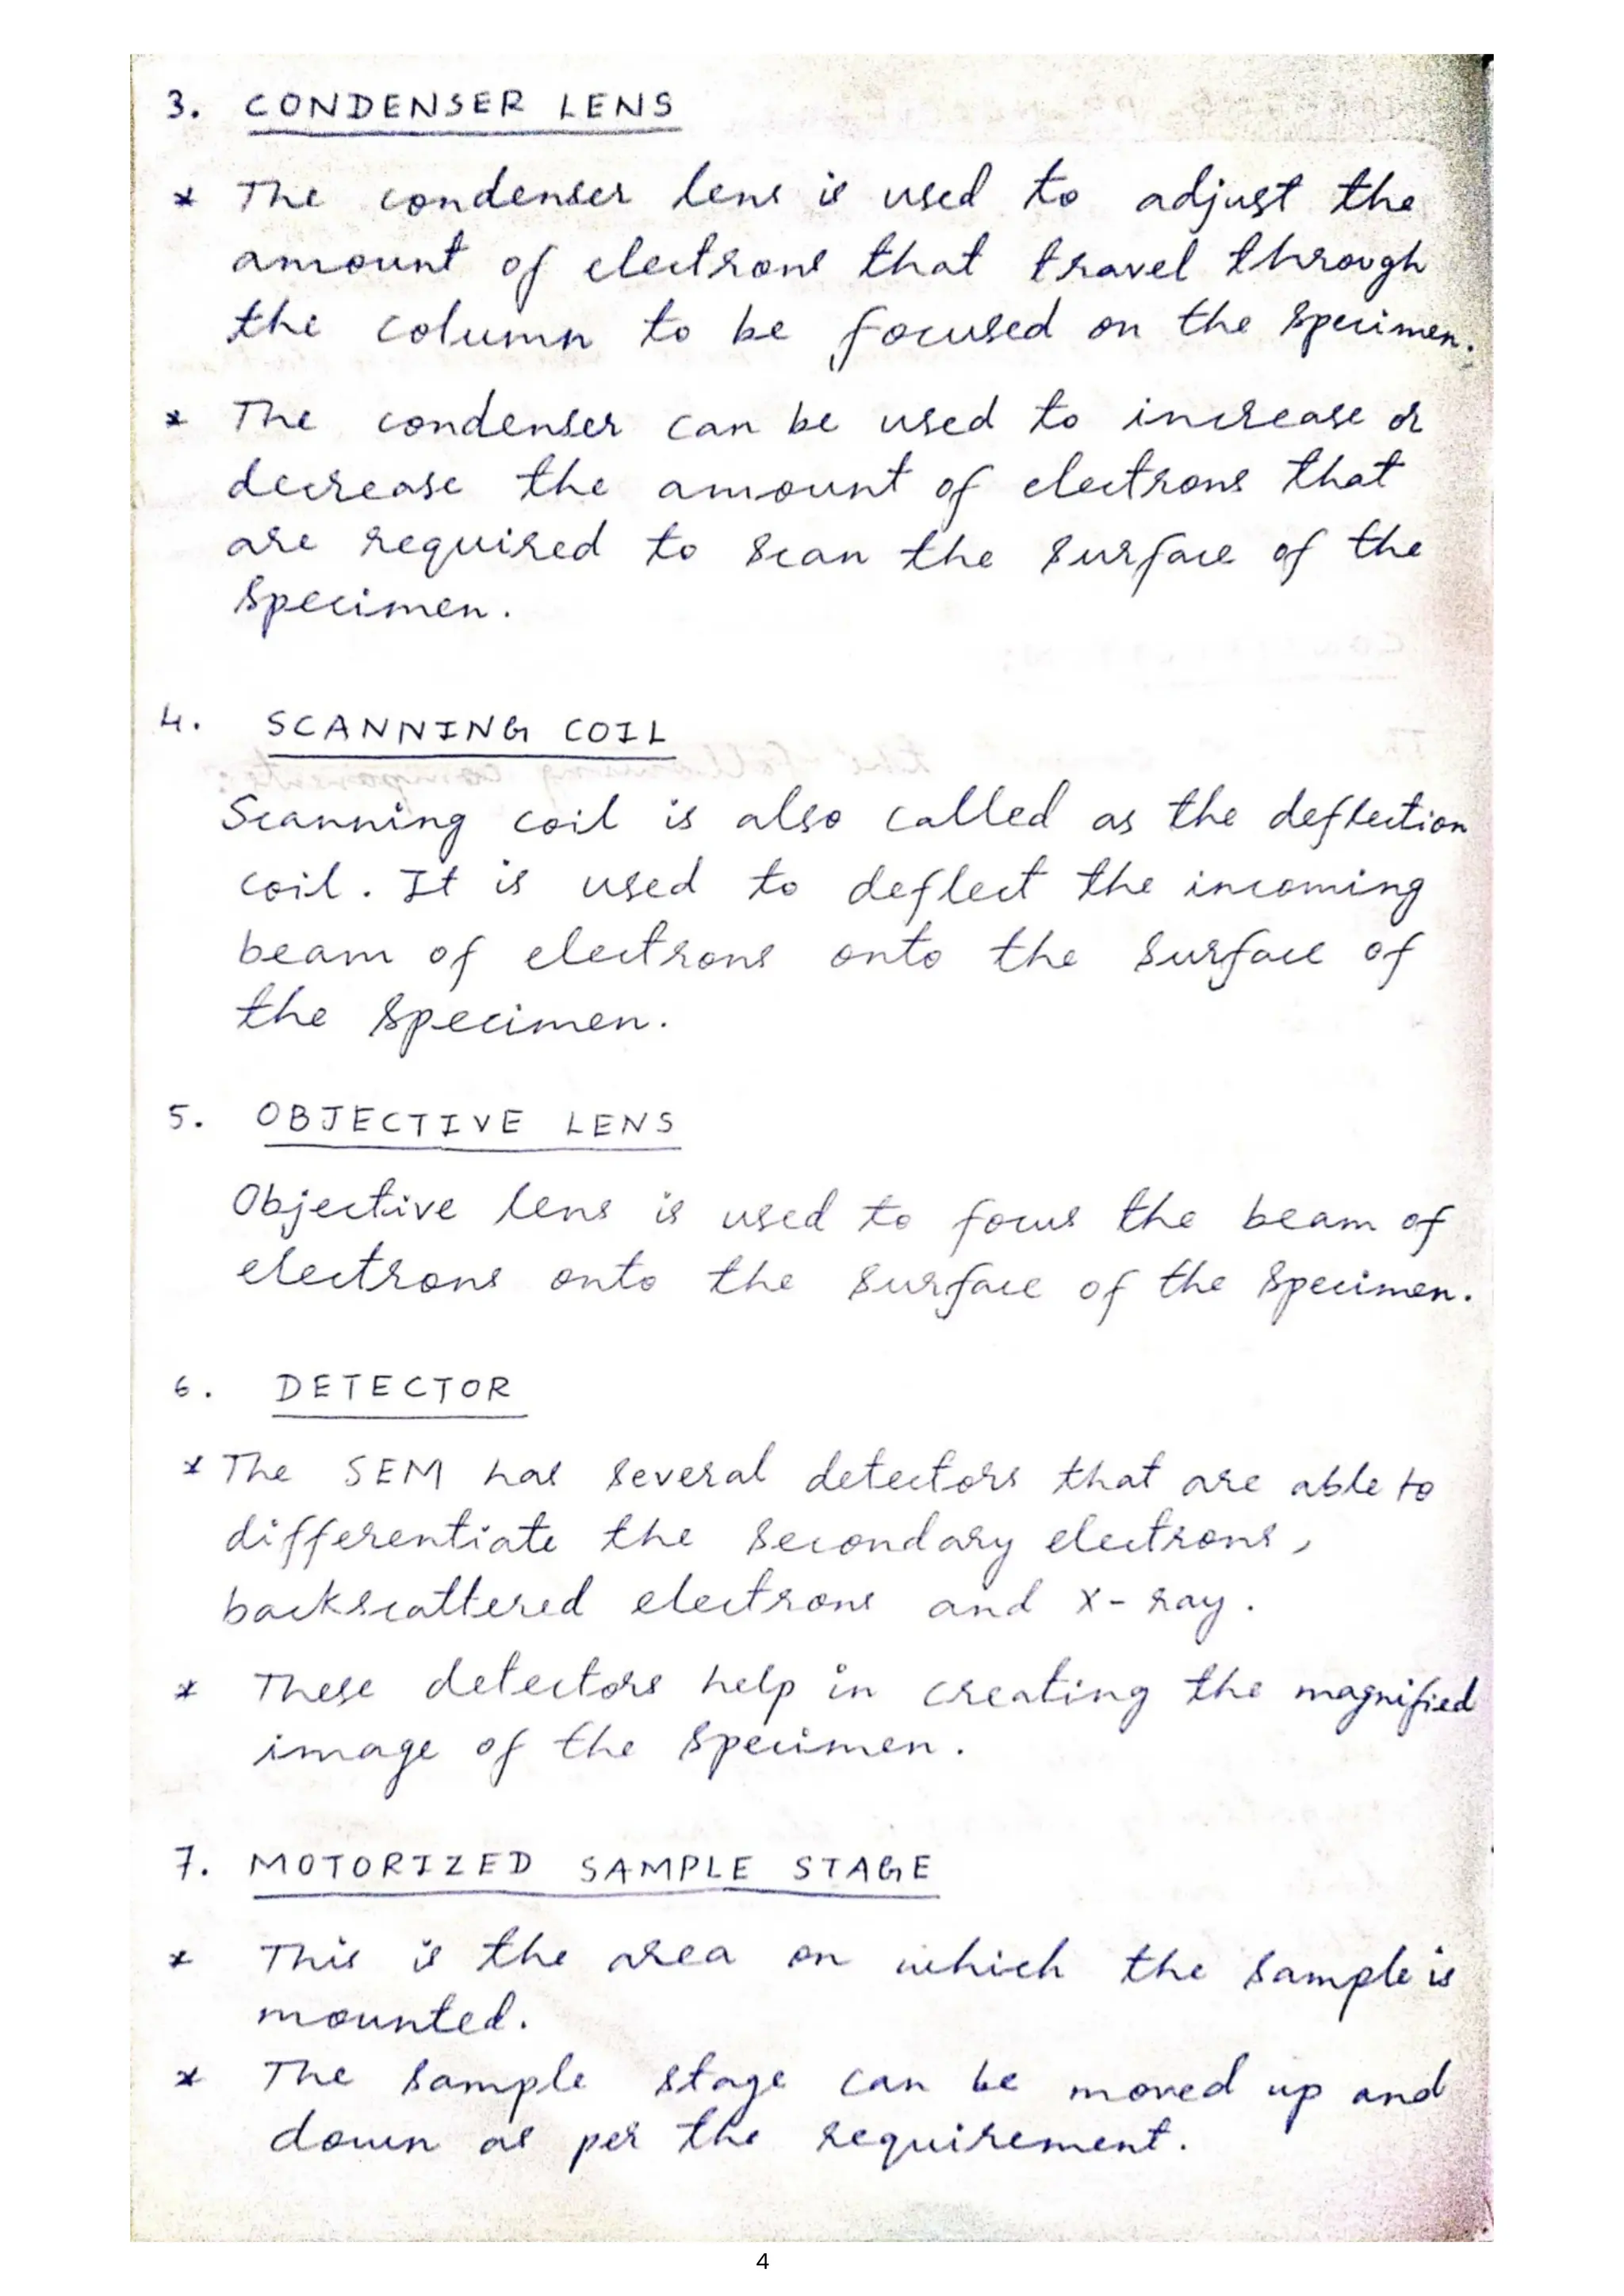 3. CONDENSER LENS
* The condenser lens is used to adjust the
amount of electrons that travel through
the column to be focused on the specimen.
* The condenser can be used to increase or
decrease the amount of electrons that
are required to scan the surface of the
specimen.
4. SCANNING COIL
Scanning coil is also called as the deflection
coil. It is used to deflect the incoming
beam of electrons onto the surface of
the specimen.
5. OBJECTIVE LENS
Objective lens is used to focus the beam of
electrons onto the surface of the specimen.
6. DETECTOR
* The SEM has several detectors that are able to
differentiate the secondary electrons,
backscattered electrons and X-ray.
* These detectors help in creating the magnified
image of the specimen.
7. MOTORIZED SAMPLE STAGE
* This is the area on which the sample is
mounted.
* The sample stage can be moved up and
down as per the requirement.
4